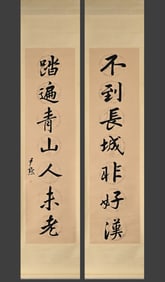 不到長城非好漢
踏遍青山人未老